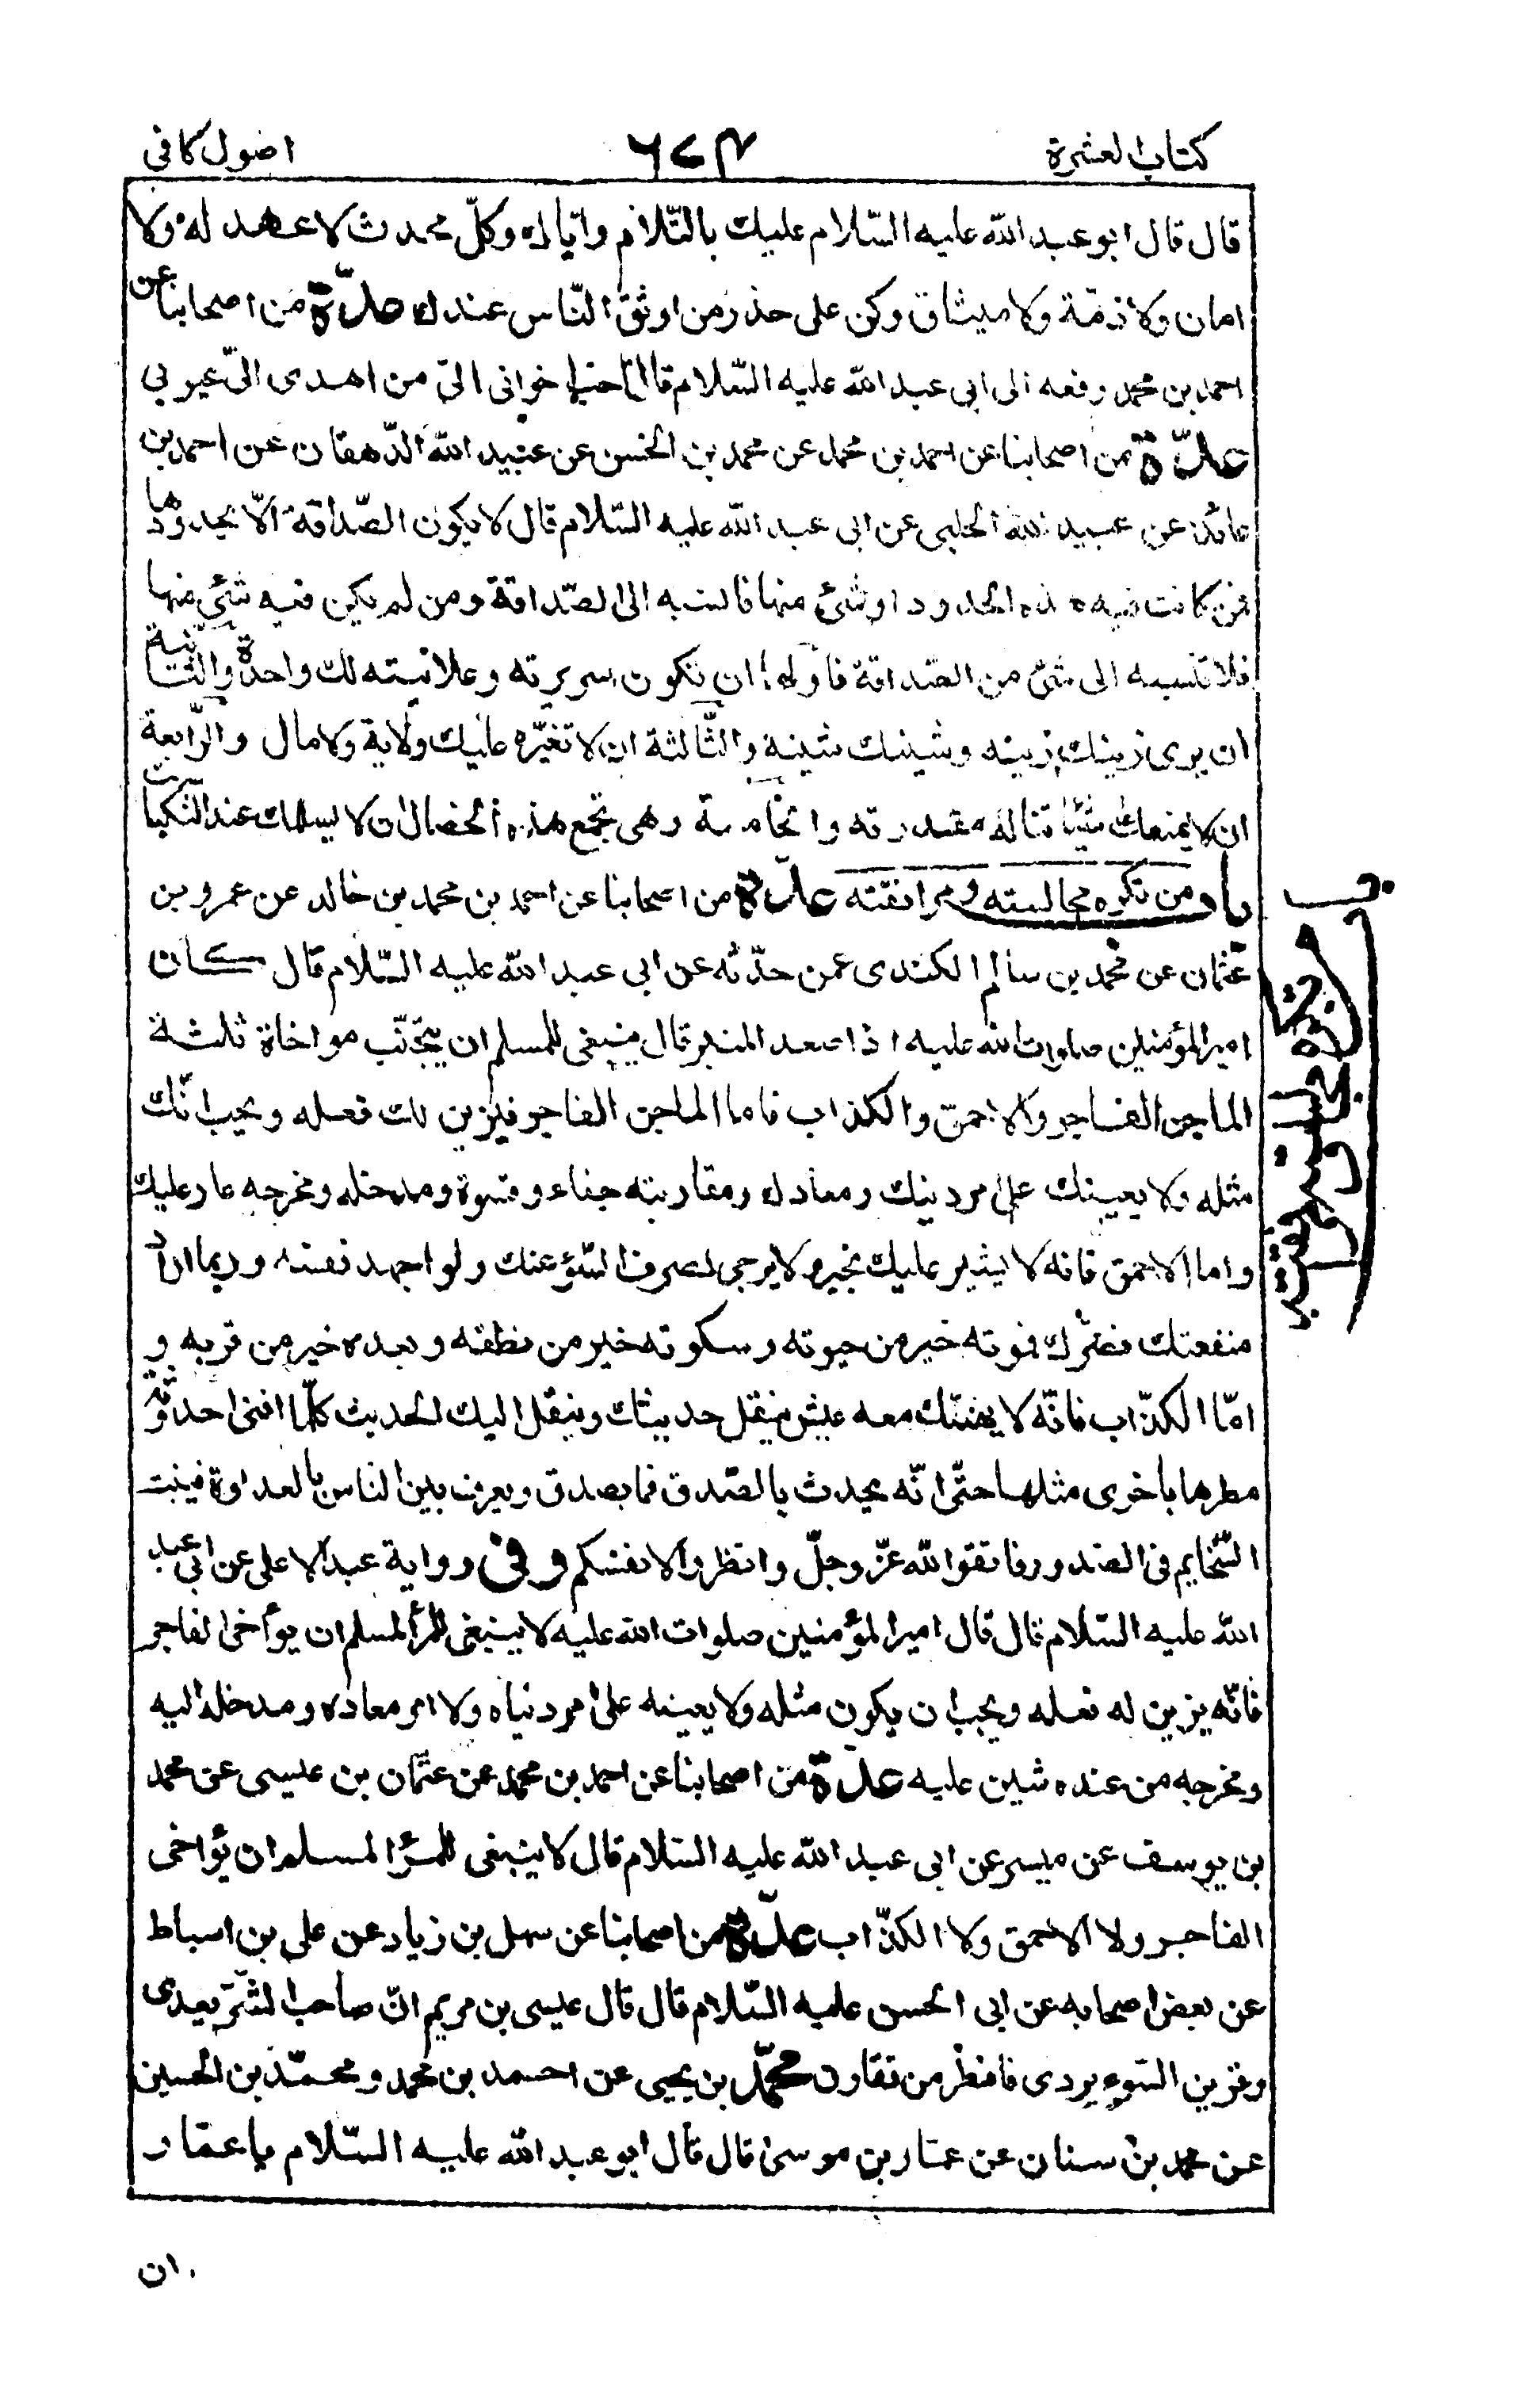 كتاب العشرة
٦٧٤
اصول كافی
قال قال ابو عبد الله عليه السّلام عليك بالتّلاد وايّاك وكلّ محدث لا عهد له ولا
امان ولا ذمّة ولا ميثاق وكن على حذر من اوثق النّاس عندك عدّة من اصحابنا عن
احمد بن محمد رفعه الى ابى عبد الله عليه السّلام قال احبّ اخوانى الىّ من اهدى الىّ عيوبى
عدّة من اصحابنا عن احمد بن محمد عن محمد بن الحسن عن عبيد الله الدّهقان عن احمد بن
عائذ عن عبيد الله الحلبى عن ابى عبد الله عليه السّلام قال لا يكون الصّداقة الّا بحدودها
فمن كانت فيه هذه الحدود او شئ منها فانسبه الى الصّداقة ومن لم يكن فيه شئ منها
فلا تنسبه الى شئ من الصّداقة فاولها ان تكون سريرته وعلانيته لك واحدة والثّانية
ان يرى زينك زينه وشينك شينه والثّالثة ان لا تغيّره عليك ولاية ولا مال والرّابعة
ان لا يمنعك شيئا تناله مقدرته والخامسة وهى تجمع هذه الخصال ان لا يسلمك عند النّكبات
باب من تكره مجالسته ومرافقته عدّة من اصحابنا عن احمد بن محمد بن خالد عن عمرو بن
عثمان عن محمد بن سالم الكندى عمن حدّثه عن ابى عبد الله عليه السّلام قال كان
امير المؤمنين صلوات الله عليه اذا صعد المنبر قال ينبغى للمسلم ان يتجنّب مواخاة ثلثة
الماجن الفاجر والاحمق والكذاب فاما الماجن الفاجر فيزين لك فعله ويحب انّك
مثله ولا يعينك على امر دينك ومعادك ومقاربته جفاء وقسوة ومدخله ومخرجه عار عليك
واما الاحمق فانه لا يشير عليك بخير ولا يرجى لصرف السّوء عنك ولو اجهد نفسه وربما اراد
منفعتك فضرّك فموته خير من حيوته وسكوته خير من نطقه وبعده خير من قربه و
امّا الكذّاب فانّه لا يهنئك معه عيش ينقل حديثك وينقل اليك الحديث كلّما افنى احدوثة
مطرها باخرى مثلها حتّى انّه يحدث بالصّدق فما يصدق ويعرف بين الناس بالعداوة فينبت
السّخايم فى الصدور فاتقوا الله عزّ وجلّ وانظروا لانفسكم وفى رواية عبد الاعلى عن ابى عبد
الله عليه السّلام قال قال امير المؤمنين صلوات الله عليه لا ينبغى للمرأ المسلم ان يوأخى الفاجر
فانّه يزين له فعله ويحب ان يكون مثله ولا يعينه على امر دنياه ولا امر معاده ومدخله اليه
ومخرجه من عنده شين عليه عدّة من اصحابنا عن احمد بن محمد عن عثمان بن عيسى عن محمد
بن يوسف عن ميسر عن ابى عبد الله عليه السّلام قال لا ينبغى للمرؤ المسلم ان يؤاخى
الفاجر ولا الاحمق ولا الكذّاب عدّة من اصحابنا عن سهل بن زياد عن على بن اسباط
عن بعض اصحابه عن ابى الحسن عليه السّلام قال قال عيسى بن مريم انّ صاحب الشّرّ يعدى
وقرين السّوء يردى فانظر من تقارن محمّد بن يحيى عن احمد بن محمد ومحمّد بن الحسين
عن محمد بن سنان عن عمّار بن موسى قال قال ابو عبد الله عليه السّلام يا عمّار
ان